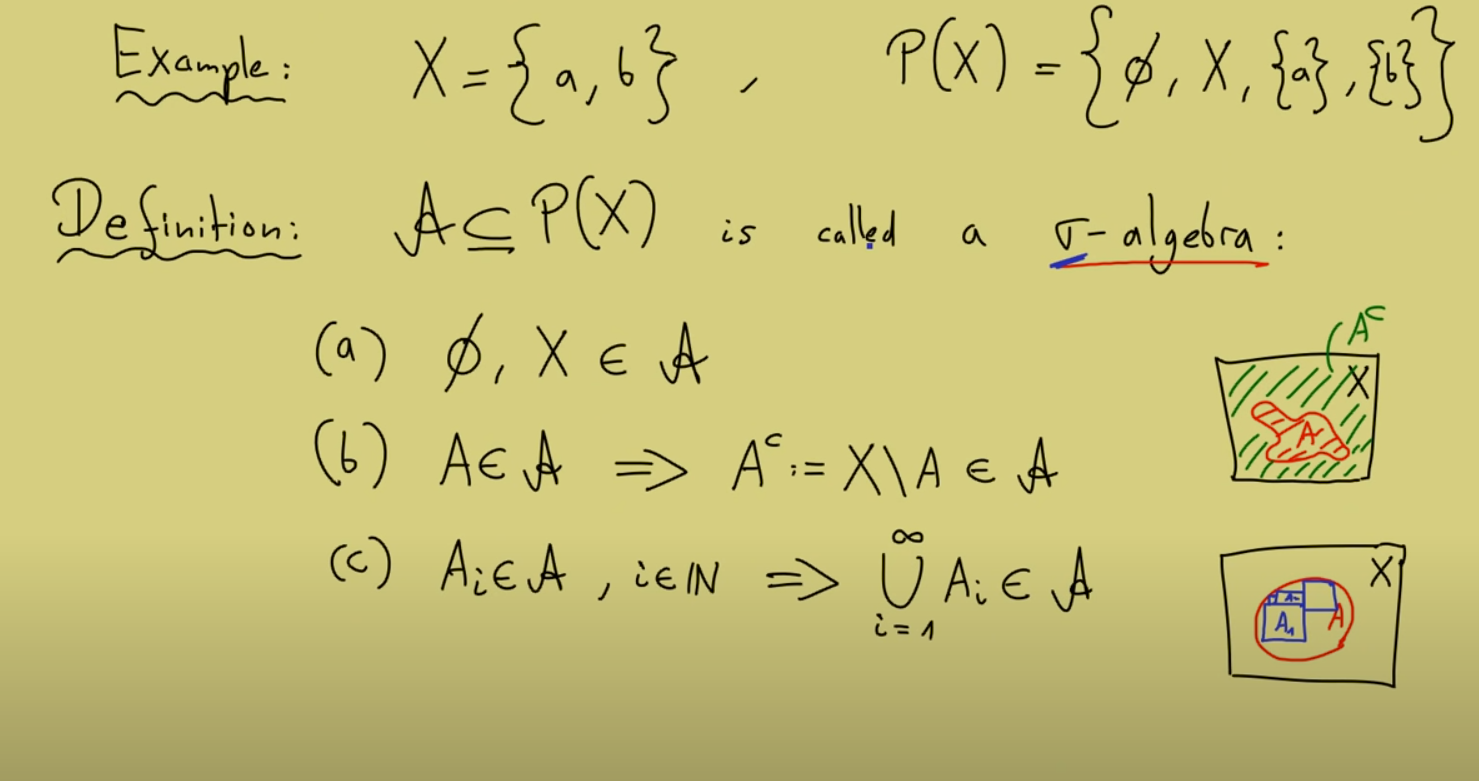 Example: X = {a, b} , P(X) = {ϕ, X, {a}, {b}}
Definition: 𝒜 ⊆ P(X) is called a σ-algebra:
(a) ϕ, X ∈ 𝒜
(b) A ∈ 𝒜 ⇒ Aᶜ := X\A ∈ 𝒜
(c) Aᵢ ∈ 𝒜 , i ∈ ℕ ⇒ ⋃_{i=1}^{∞} Aᵢ ∈ 𝒜
Aᶜ
X
A
X
A₁
A